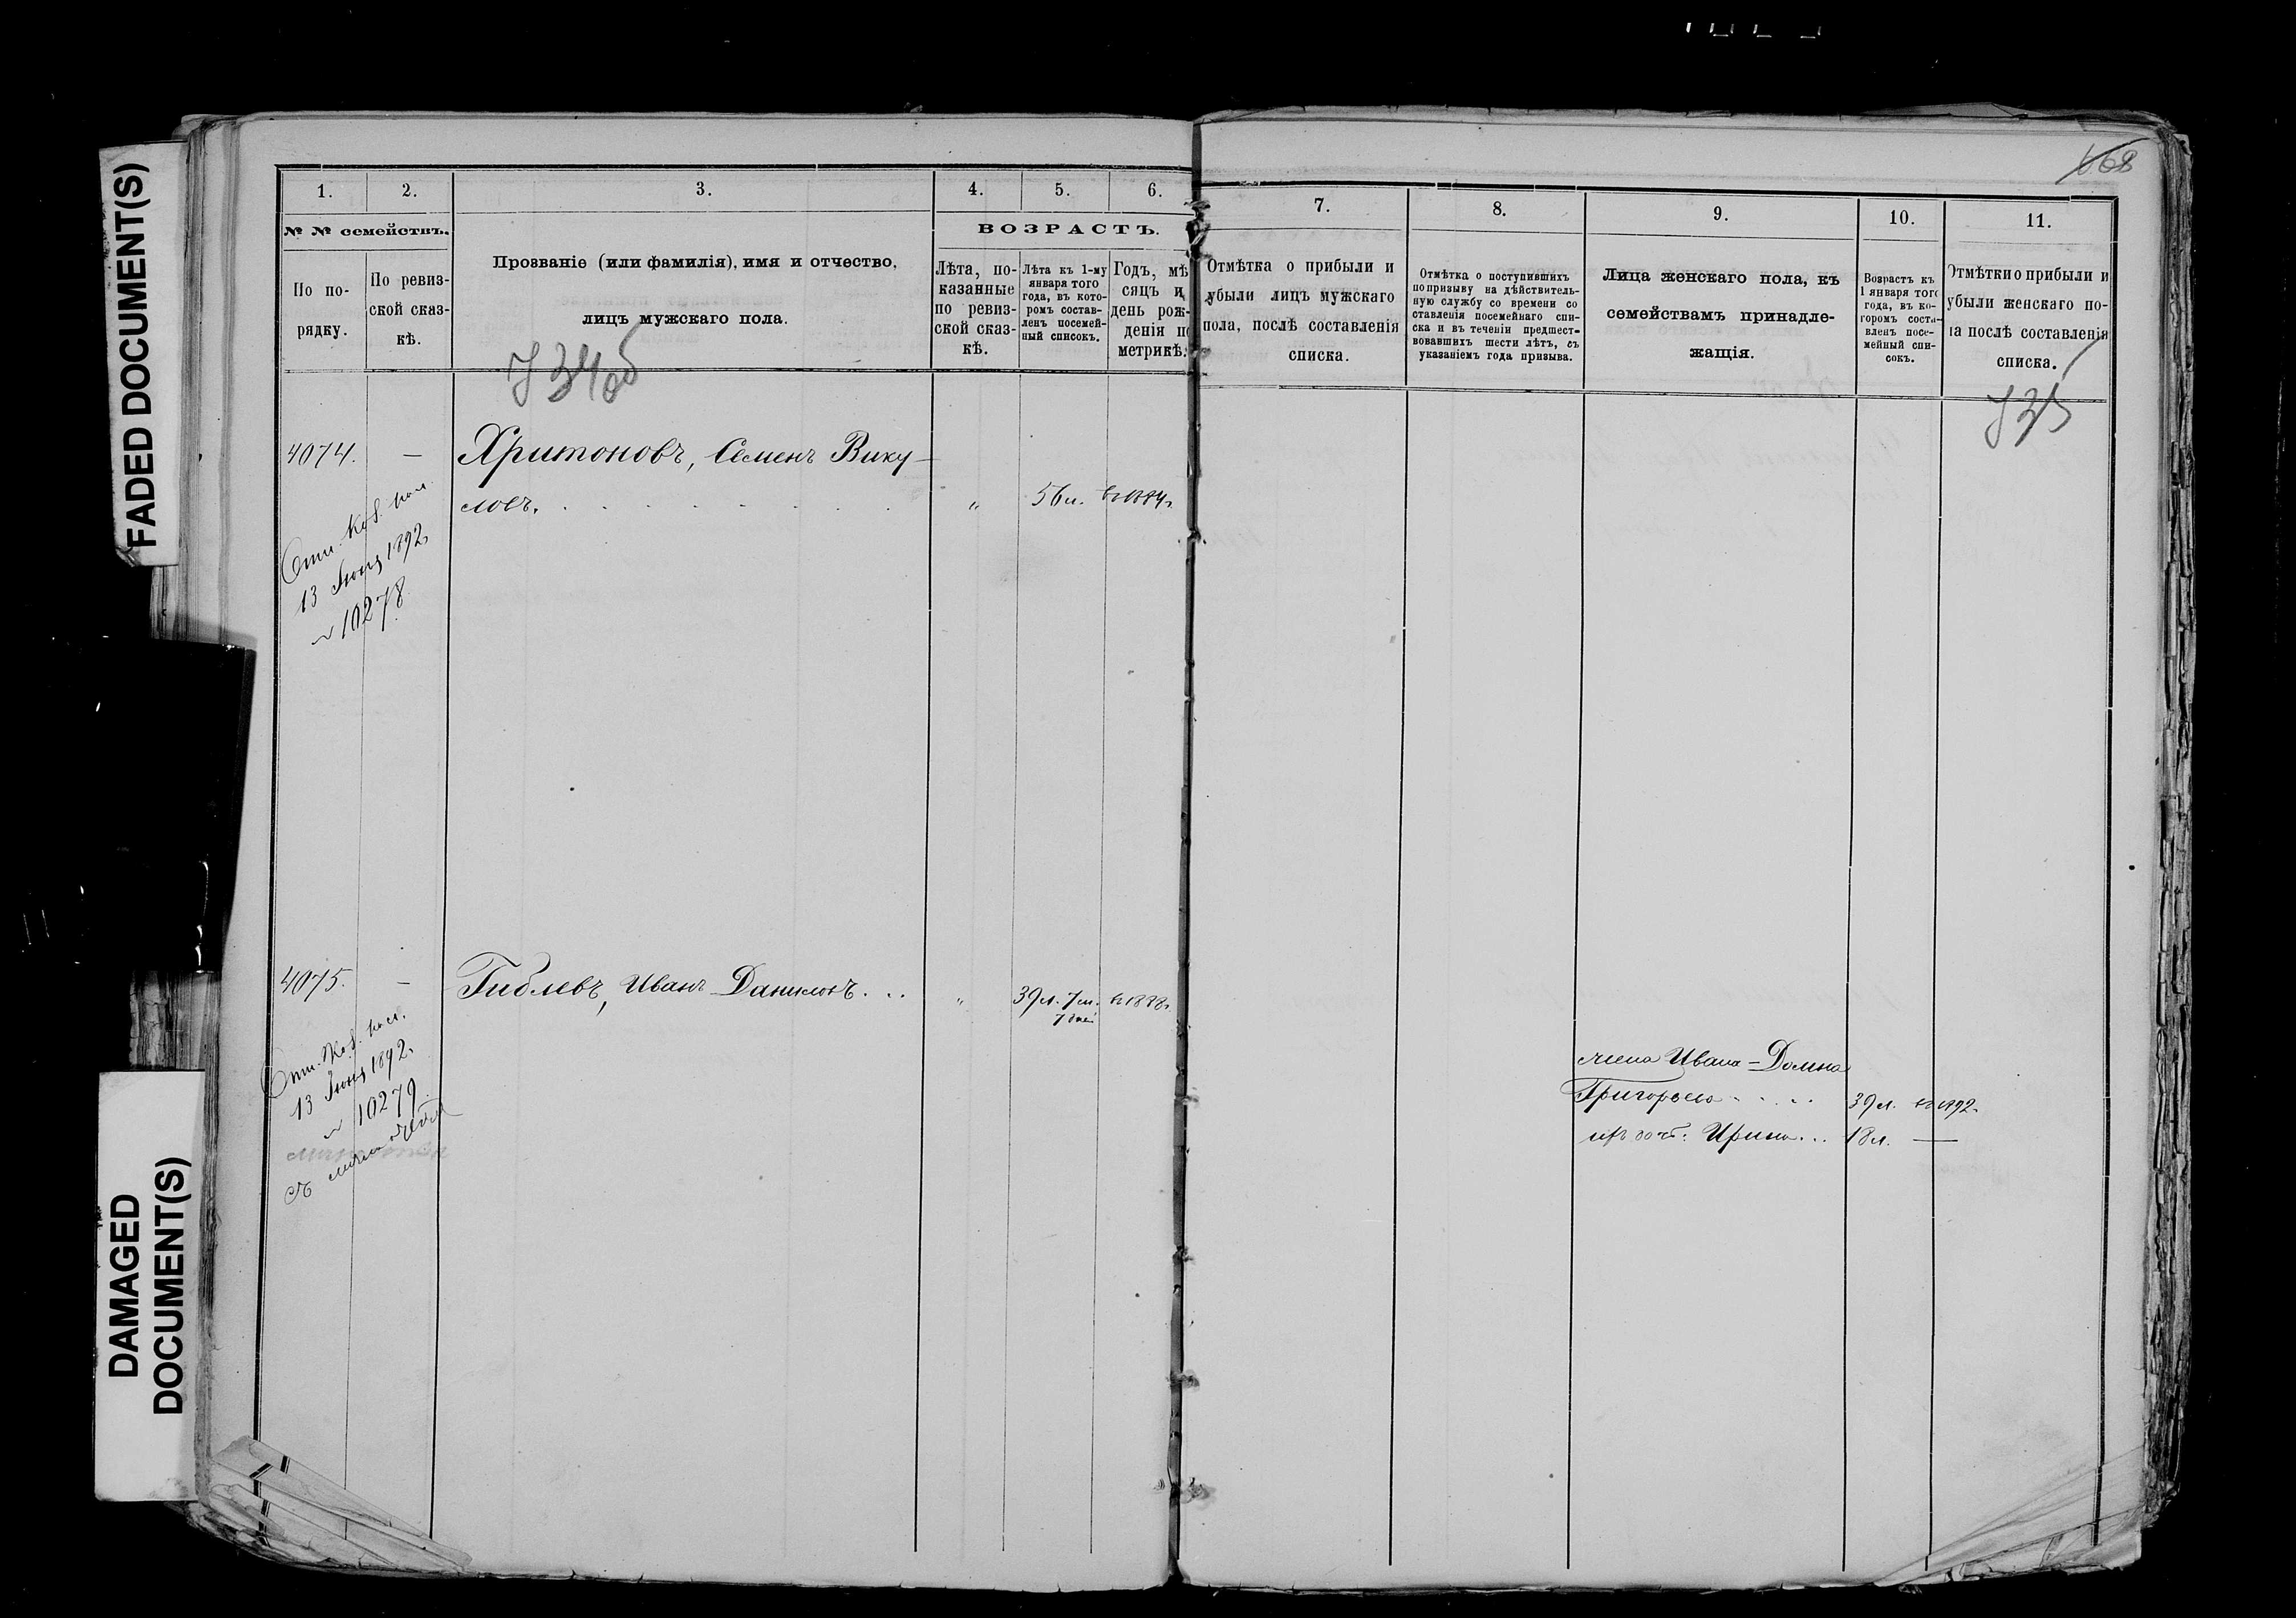 FADED DOCUMENT(S)
DAMAGED
DOCUMENT(S)
1.
2.
3.
4.
5.
6.
№ № семействъ.
По по-
рядку.
По ревиз-
ской сказ-
кѣ.
Прозваніе (или фамилія), имя и отчество,
лицъ мужскаго пола.
ВОЗРАСТЪ.
Лѣта, по-
казанные
по ревиз-
ской сказ-
кѣ.
Лѣта къ 1-му
января того
года, въ кото-
ромъ состав-
ленъ посемей-
ный списокъ.
Годъ, мѣ
сяцъ и
день рож-
деніи по
метрикѣ.
734об
4074.
—
Хритоновъ, Семенъ Вику-
ловъ.
„
56 л.
въ 1884 г.
13 Іюня 1892
№ 10278
4075.
—
Гиблевъ, Иванъ Даниловъ. . .
„
39 л. 7 м.
7 дней
въ 1888 г.
13 Іюня 1892.
№ 10279
7.
8.
9.
10.
11.
Отмѣтка о прибыли и
убыли лицъ мужскаго
пола, послѣ составленія
списка.
Отмѣтка о поступившихъ
по призыву на дѣйствитель-
ную службу со времени со
ставленія посемейнаго спи-
ска и въ теченіи предшест-
вовавшихъ шести лѣтъ, съ
указаніемъ года призыва.
Лица женскаго пола, къ
семействамъ принадле-
жащія.
Возрастъ къ
1 января того
года, въ ко-
торомъ соста-
вленъ посе-
мейный спи-
сокъ.
Отмѣтки о прибыли и
убыли женскаго по-
ла послѣ составленія
списка.
668
735
жена Ивана - Домна
Григорьева . . . .
39 л. въ 1892.
ихъ дочь: Ирина . . .
18 л. —